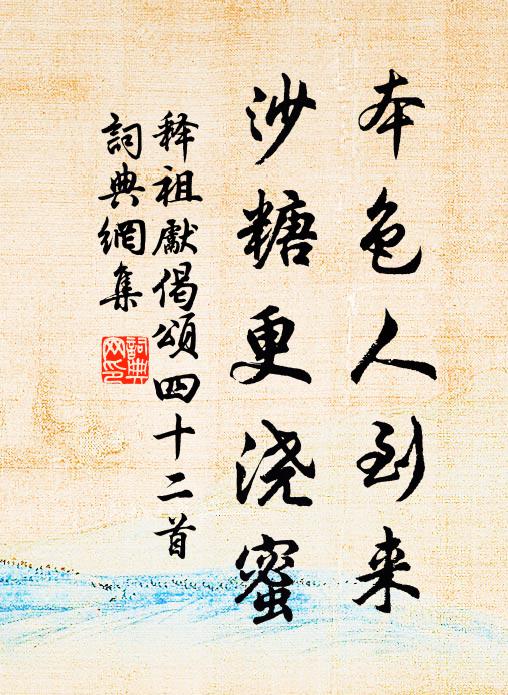 本色人到来
沙糖更浇蜜
释祖献偈颂四十二首
詞典網集
詞典
网印